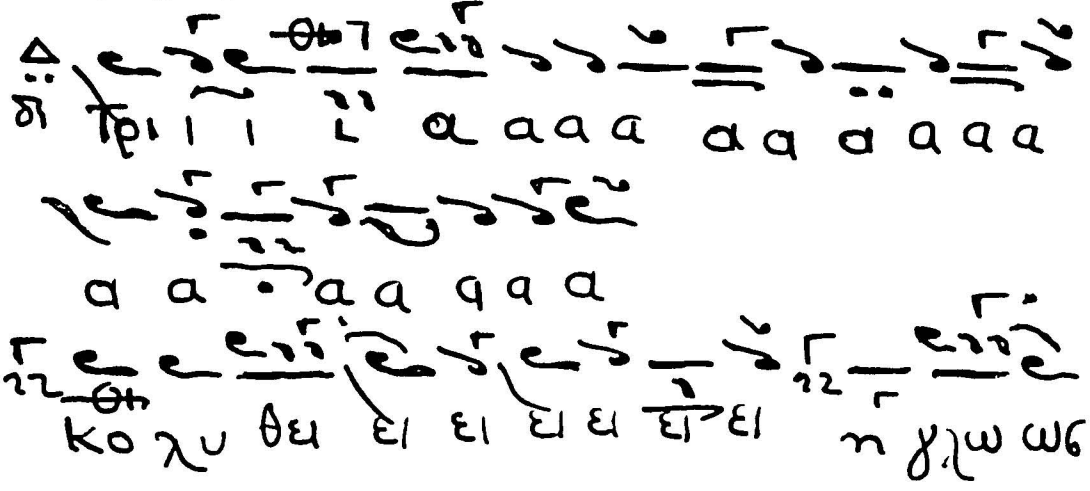 Δι Τρι ι ι ι α α α α α α α α α α
α α α α α α α
κο λυ θει ει ει ει ει ει ει η γλω ως